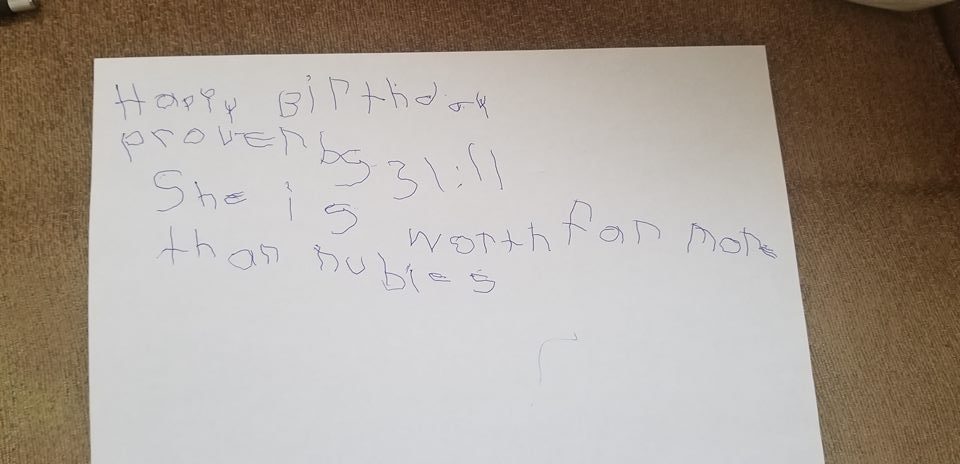 Happy Birthday
proverbs 31:11
She is worth far more
than rubies